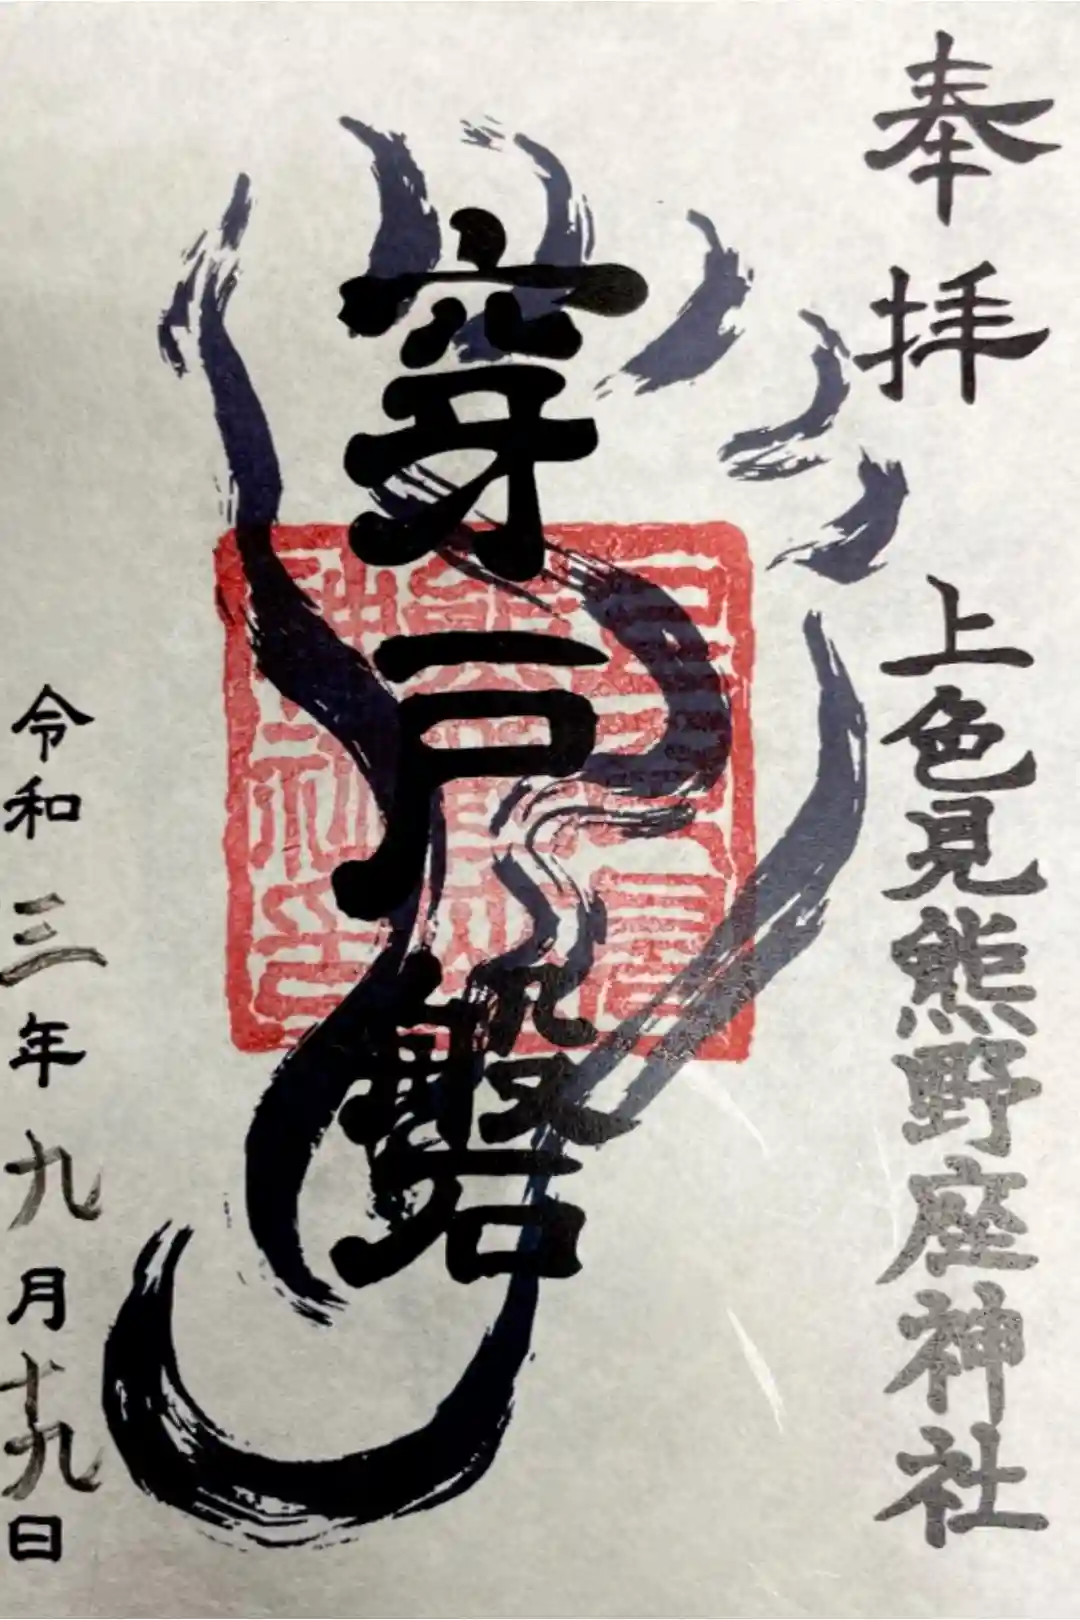 奉拝
上色見熊野座神社
穿戸磐
令和三年九月十九日